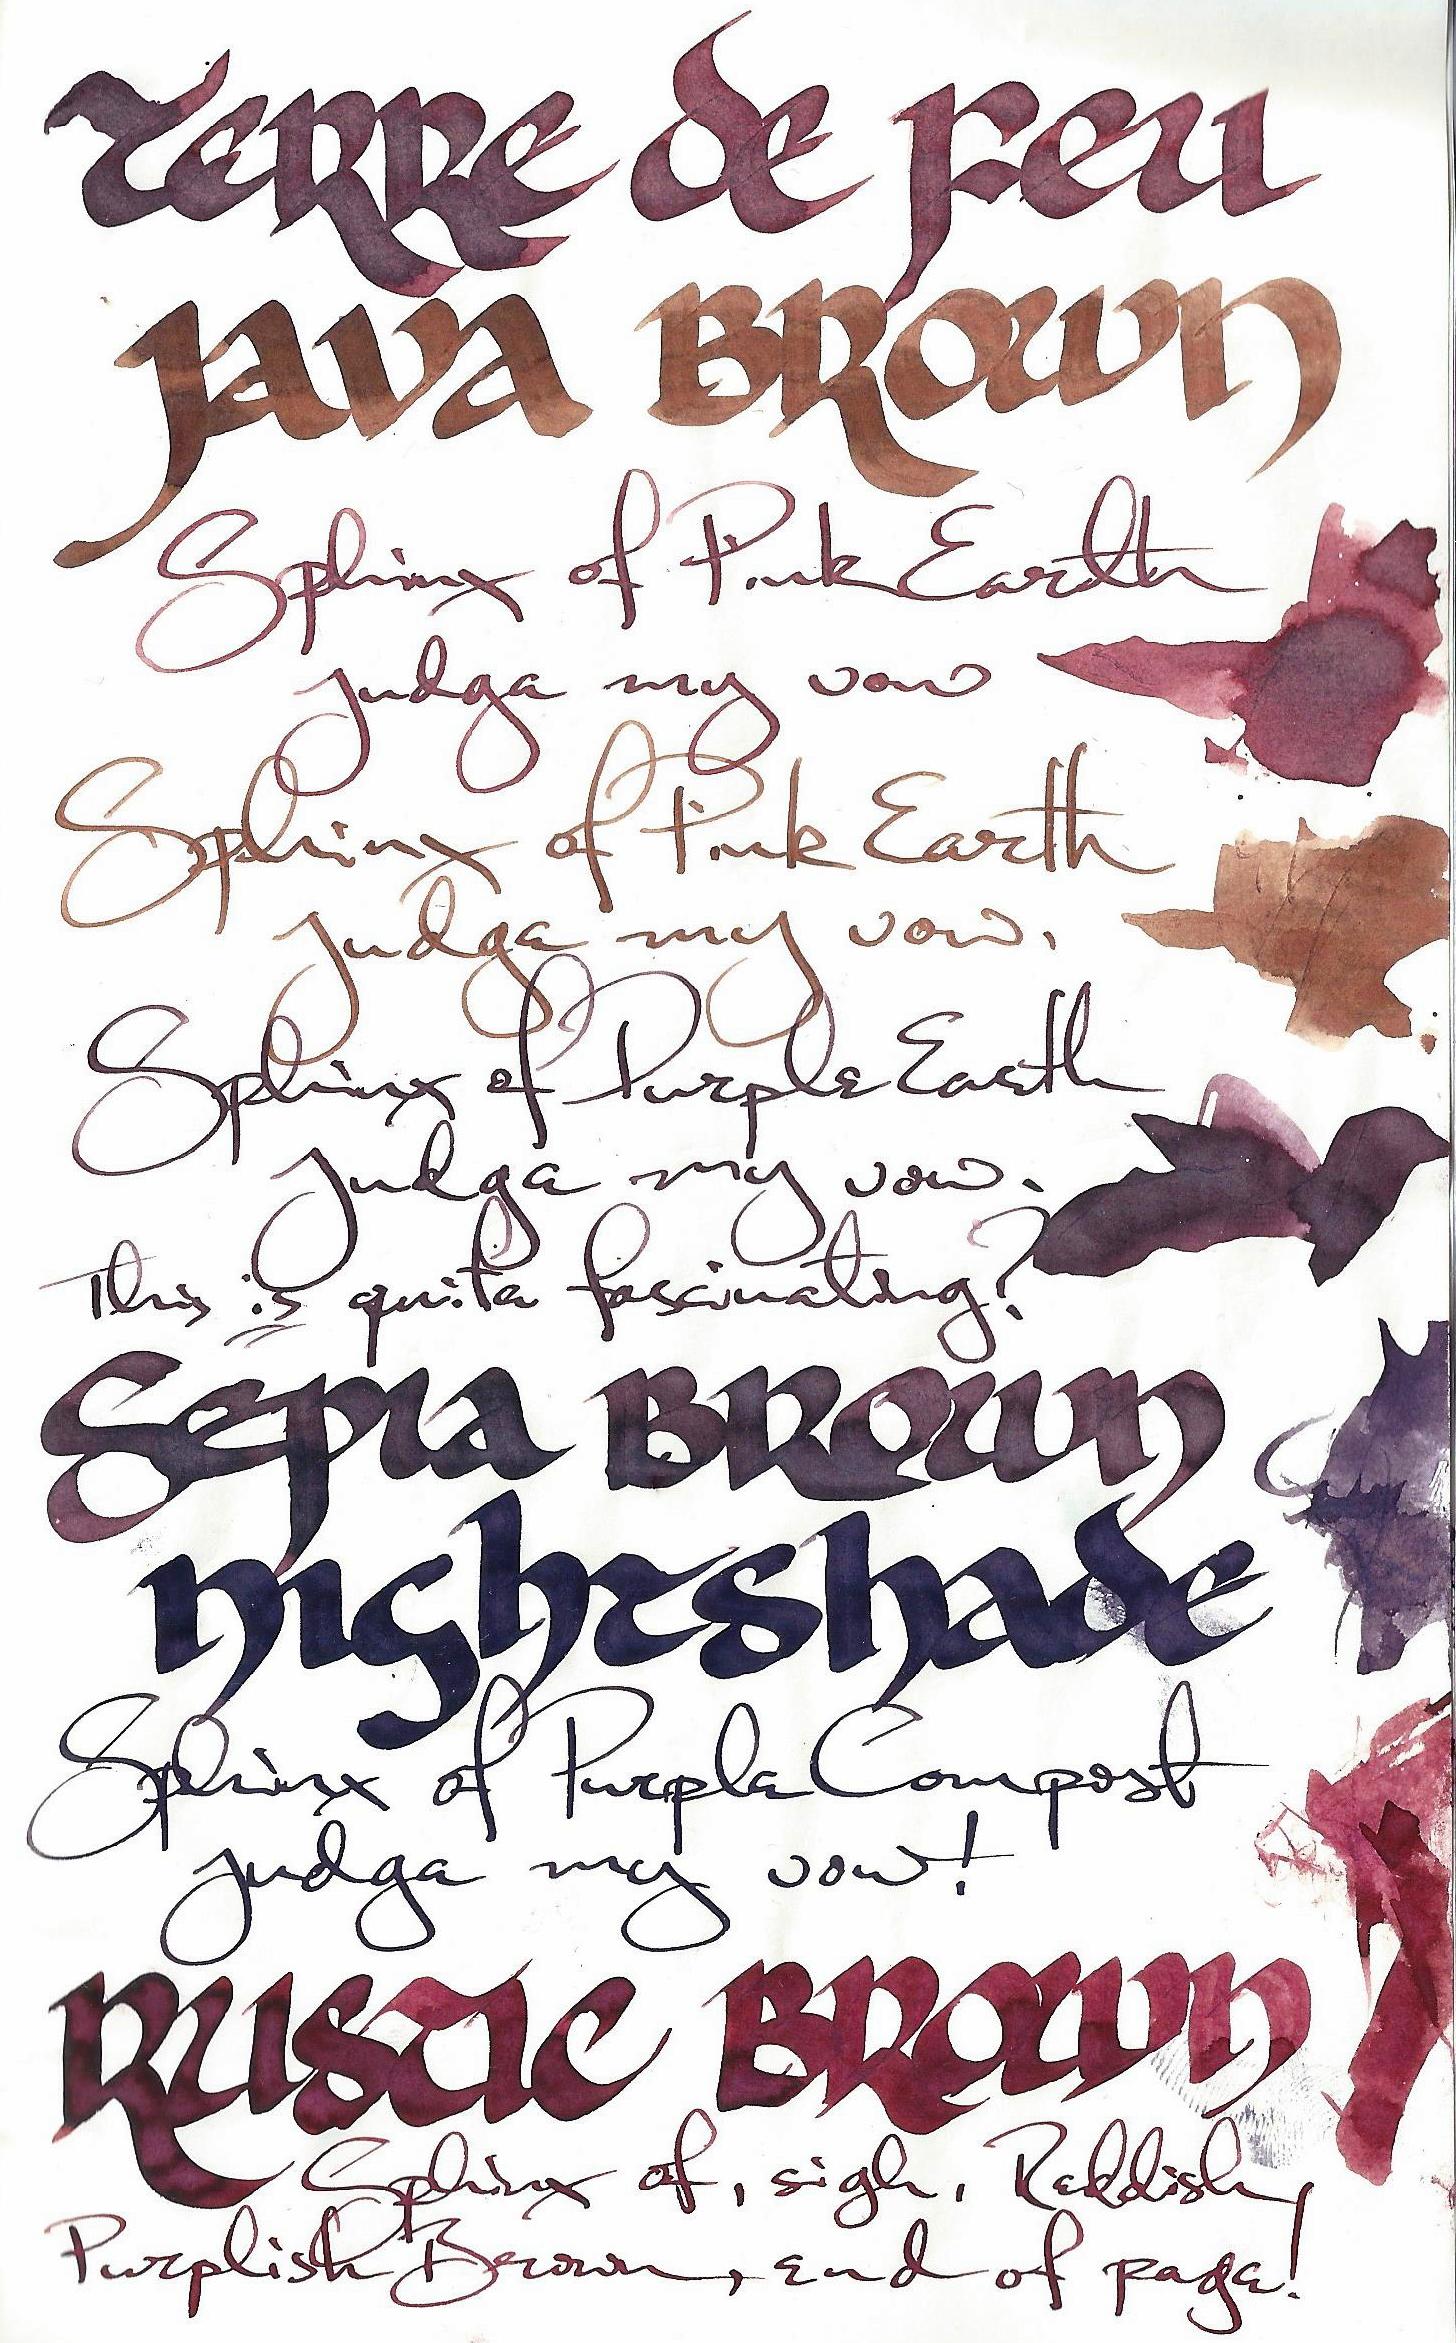 Terre de Feu
Java Brown
Sphinx of Pink Earth
judge my vow
Sphinx of Pink Earth
judge my vow.
Sphinx of Purple Earth
judge my vow.
This is quite fascinating?
Sepia Brown
Nightshade
Sphinx of Purple Compost
judge my vow!
Rustic Brown
Sphinx of, sigh, Reddish,
Purplish Brown, end of page!